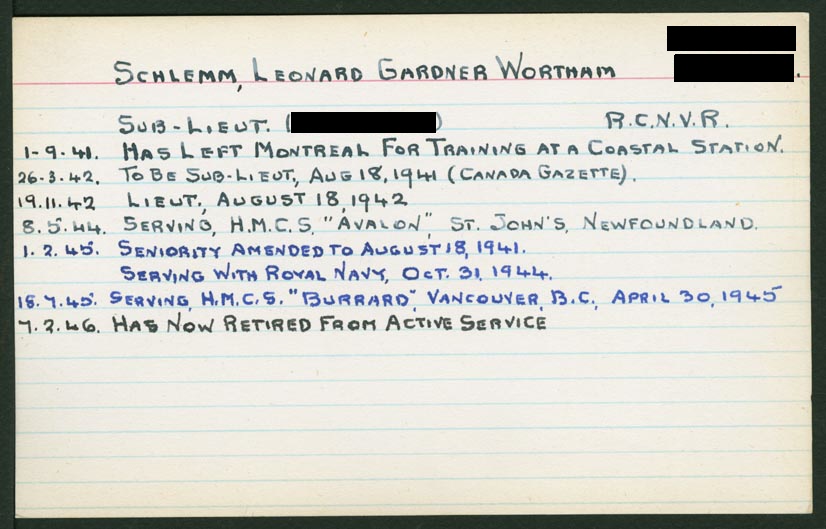 SCHLEMM, LEONARD GARDNER WORTHAM
SUB-LIEUT. ( ) R.C.N.V.R.
1-9-41. HAS LEFT MONTREAL FOR TRAINING AT A COASTAL STATION.
26-3-42. TO BE SUB-LIEUT, AUG 18, 1941 (CANADA GAZETTE).
19.11.42 LIEUT, AUGUST 18, 1942
8.5.44. SERVING, H.M.C.S. "AVALON", ST. JOHN'S, NEWFOUNDLAND.
1.2.45. SENIORITY AMENDED TO AUGUST 18, 1941.
SERVING WITH ROYAL NAVY, OCT. 31, 1944.
18.7.45. SERVING, H.M.C.S. "BURRARD", VANCOUVER, B.C, APRIL 30, 1945
7.2.46. HAS NOW RETIRED FROM ACTIVE SERVICE